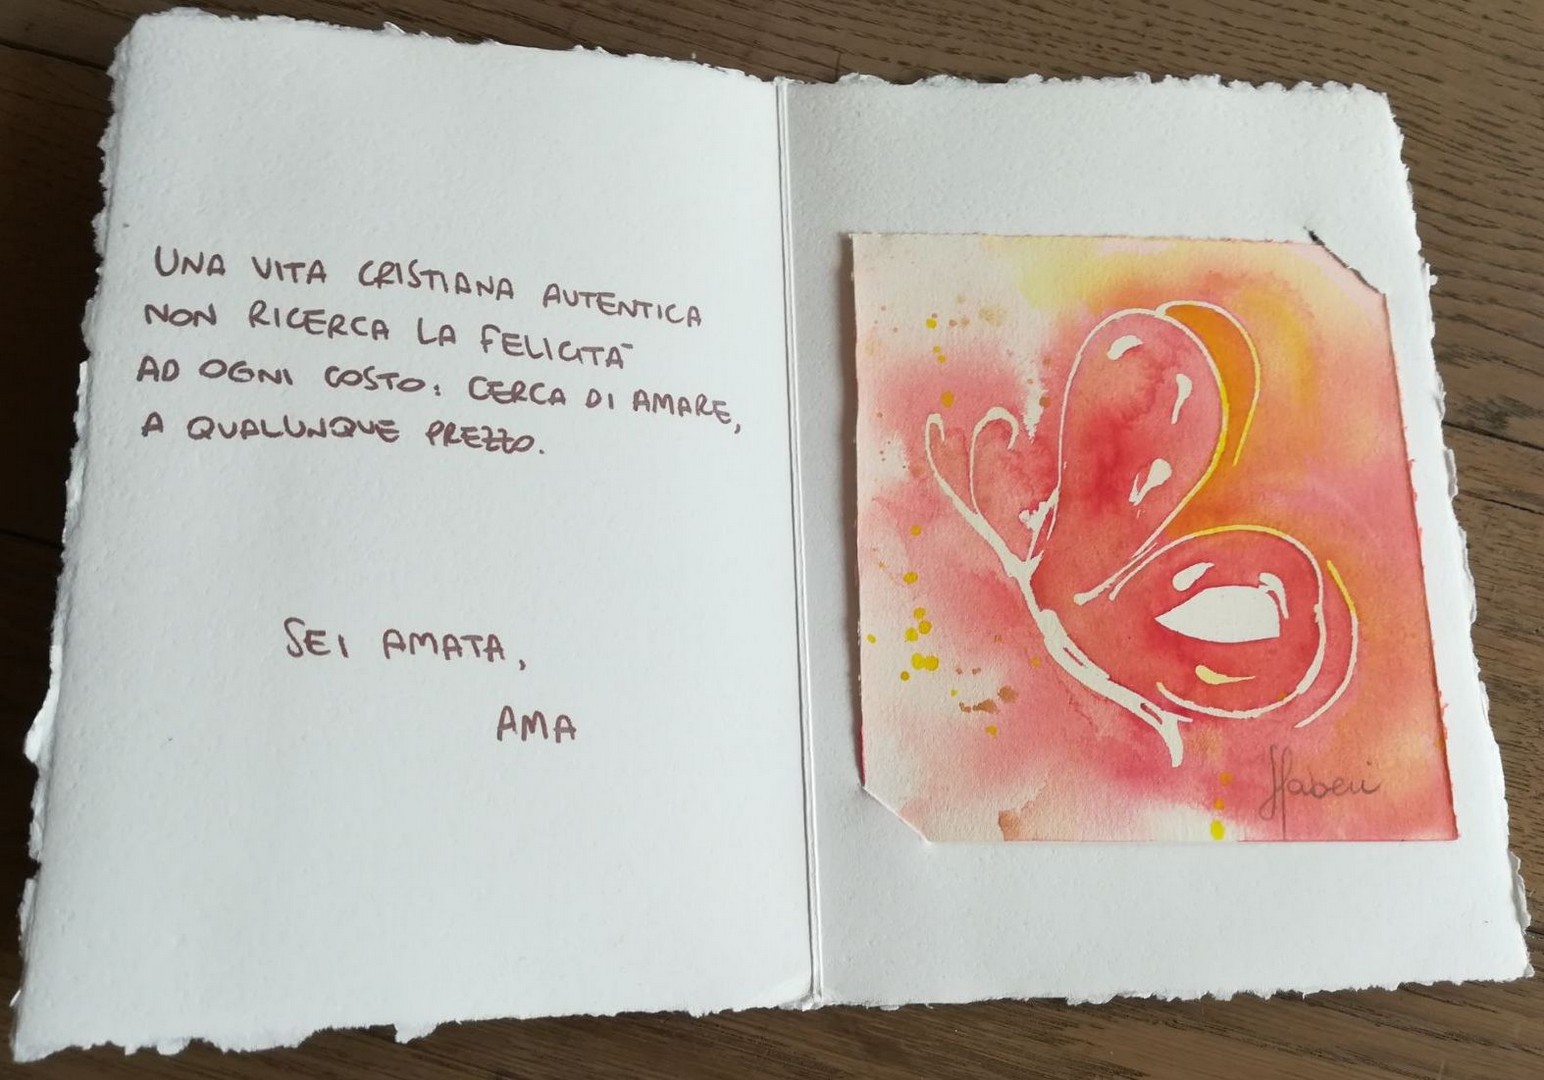 UNA VITA CRISTIANA AUTENTICA
NON RICERCA LA FELICITÀ
AD OGNI COSTO: CERCA DI AMARE,
A QUALUNQUE PREZZO.
SEI AMATA,
AMA